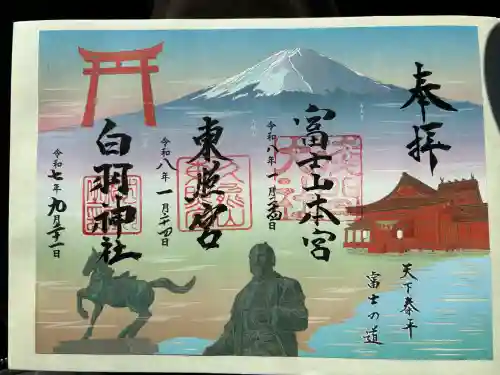 奉拝
富士山本宮
令和八年一月二十四日
東照宮
令和八年一月二十四日
白羽神社
令和七年九月二十一日
天下泰平
富士の道